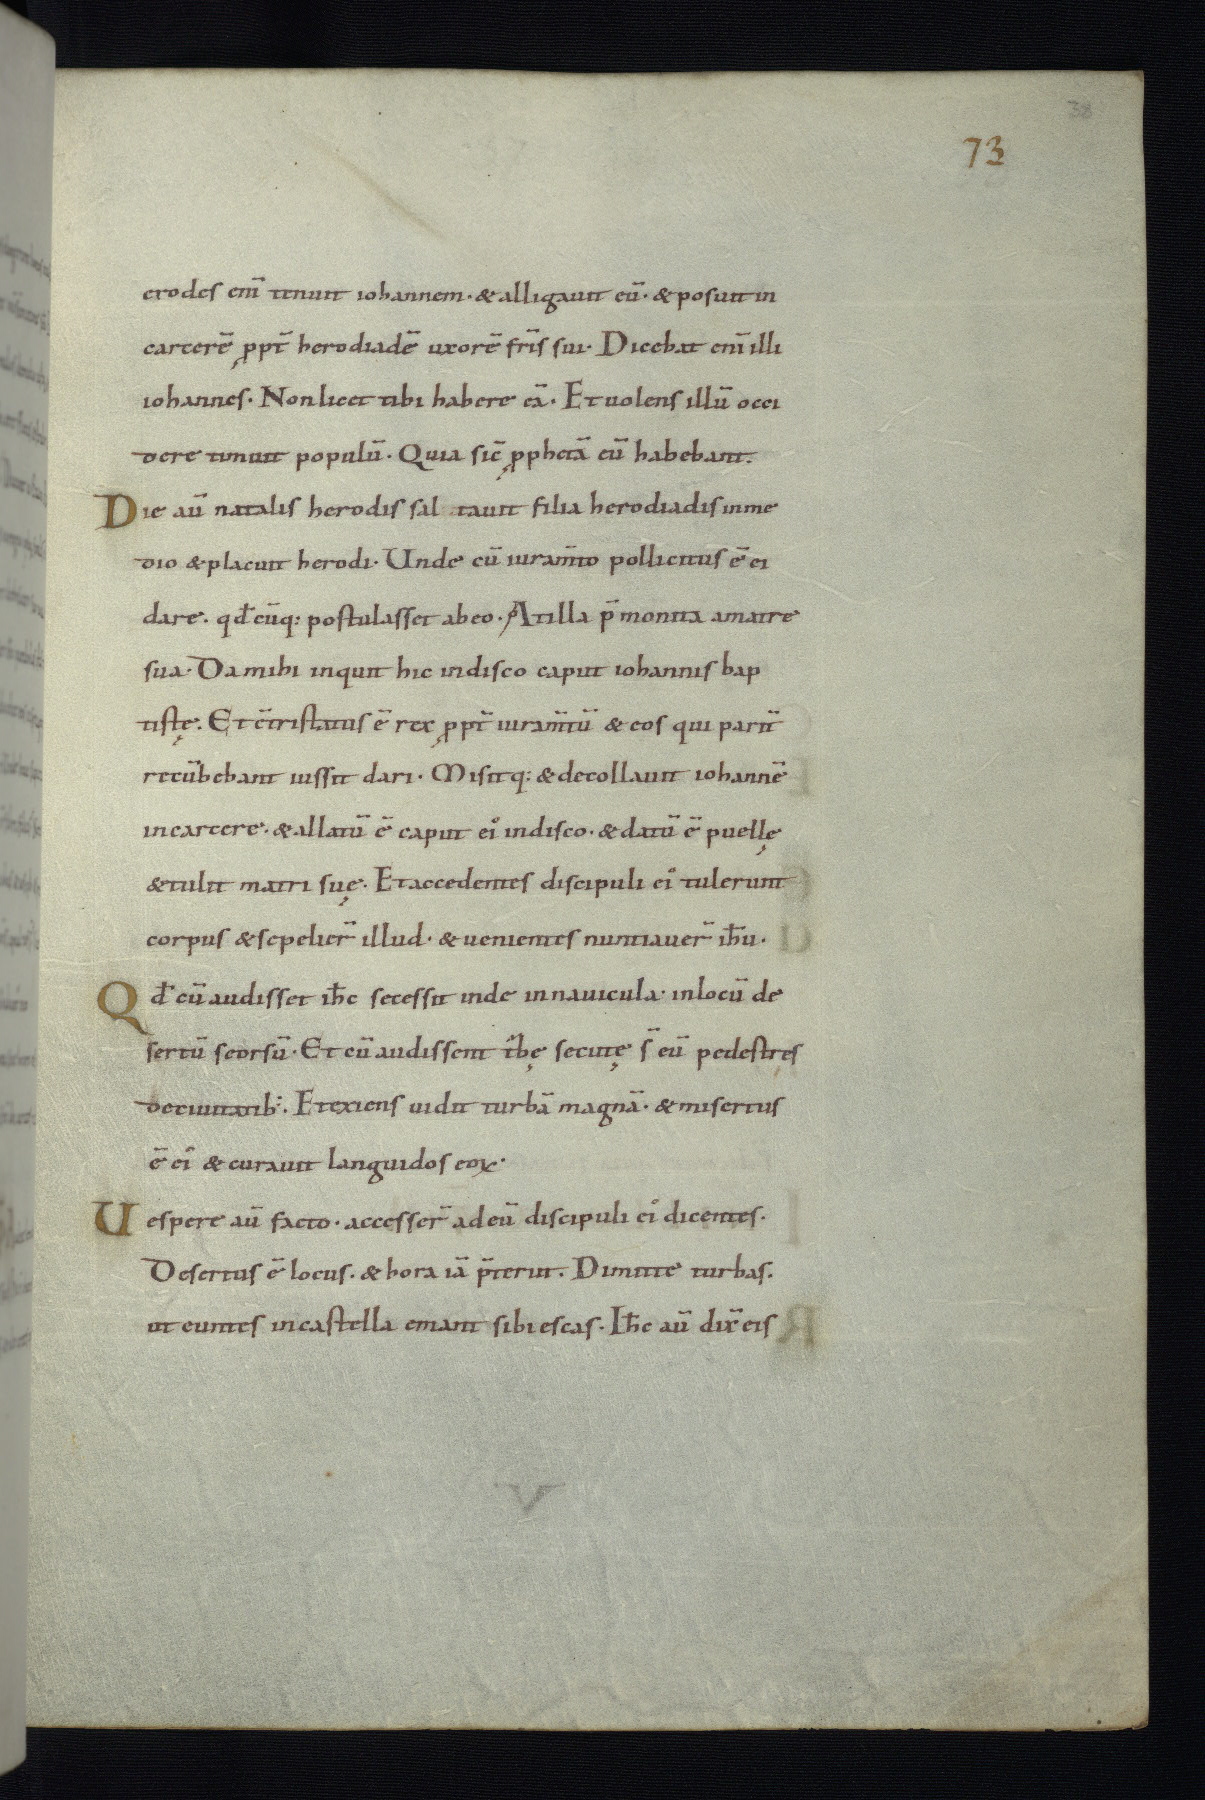 38
73
erodes eni͂ tenuit iohannem · & alligauit eū · & posuit in
carcerē ꝓpt̄ herodiadē uxorē fr̄is sui · Dicebat eni͂ illi
iohannes · Non licet tibi habere eā · Et uolens illū occi
dere timuit populū · Quia sic̄ ꝓphetā eū habebant ·
Die aū natalis herodis sal tauit filia herodiadis in me
dio & placuit herodi · Unde cū iuram̄to pollicitus ē ei
dare · qd̄ cūq: postulasset ab eo · At illa p̄monita a matre
sua · Da mihi inquit hic in disco caput iohannis bap
tistę · Et c̄tristatus ē rex ꝓpt̄ iuram̄tū & eos qui parit̄
recūbebant iussit dari · Misitq: & decollauit iohannē
in carcere · & allatū ē caput ei᾽ in disco · & datū ē puellę
& tulit matri suę · Et accedentes discipuli ei᾽ tulerunt
corpus & sepelier̄ illud · & uenientes nuntiauer̄ ih̄u ·
Qd̄ cū audisset ih̄c secessit inde in nauicula · in locū de
sertū seorsū · Et cū audissent t᷑bę secutę s̄ eū pedestres
de ciuitatib: · Et exiens uidit turbā magnā · & misertus
ē ei᾽ & curauit languidos eoꝝ ·
Uespere aū facto · accesser̄ ad eū discipuli ei᾽ dicentes ·
Desertus ē locus · & hora iā p̄teriit · Dimitte turbas ·
ut euntes in castella emant sibi escas · Ih̄c aū dix̄ eis
V